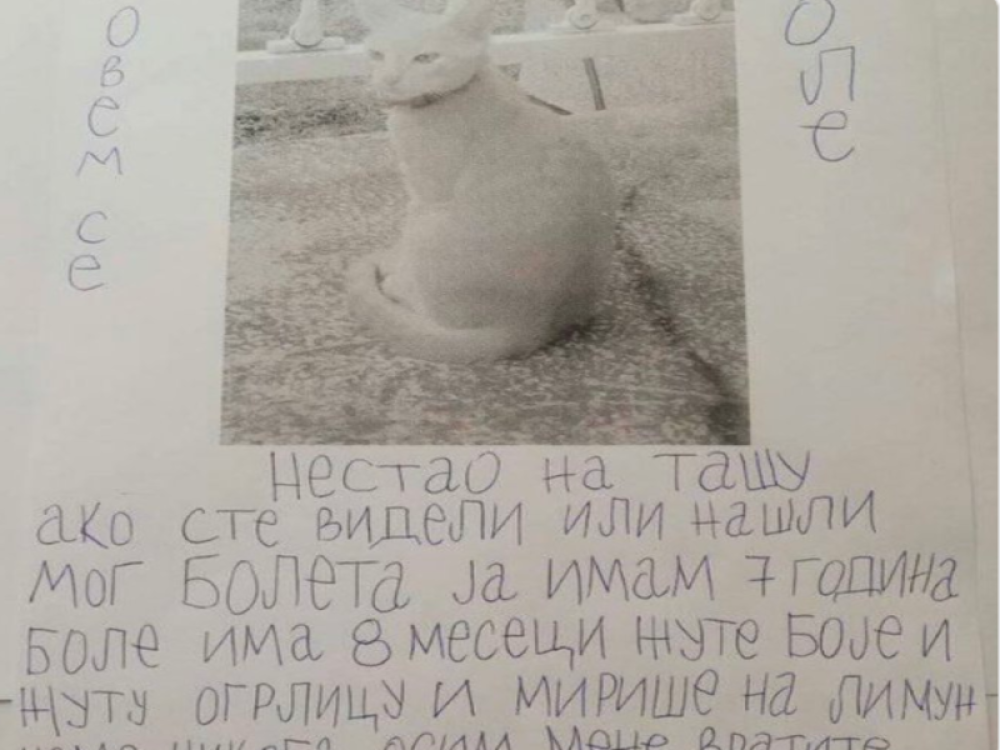 овем
се
оле
нестао на ташу
ако сте видели или нашли
мог Болета ја имам 7 година
Боле има 8 месеци жуте боје и
жуту огрлицу и мирише на лимун
нема никога осим мене вратите